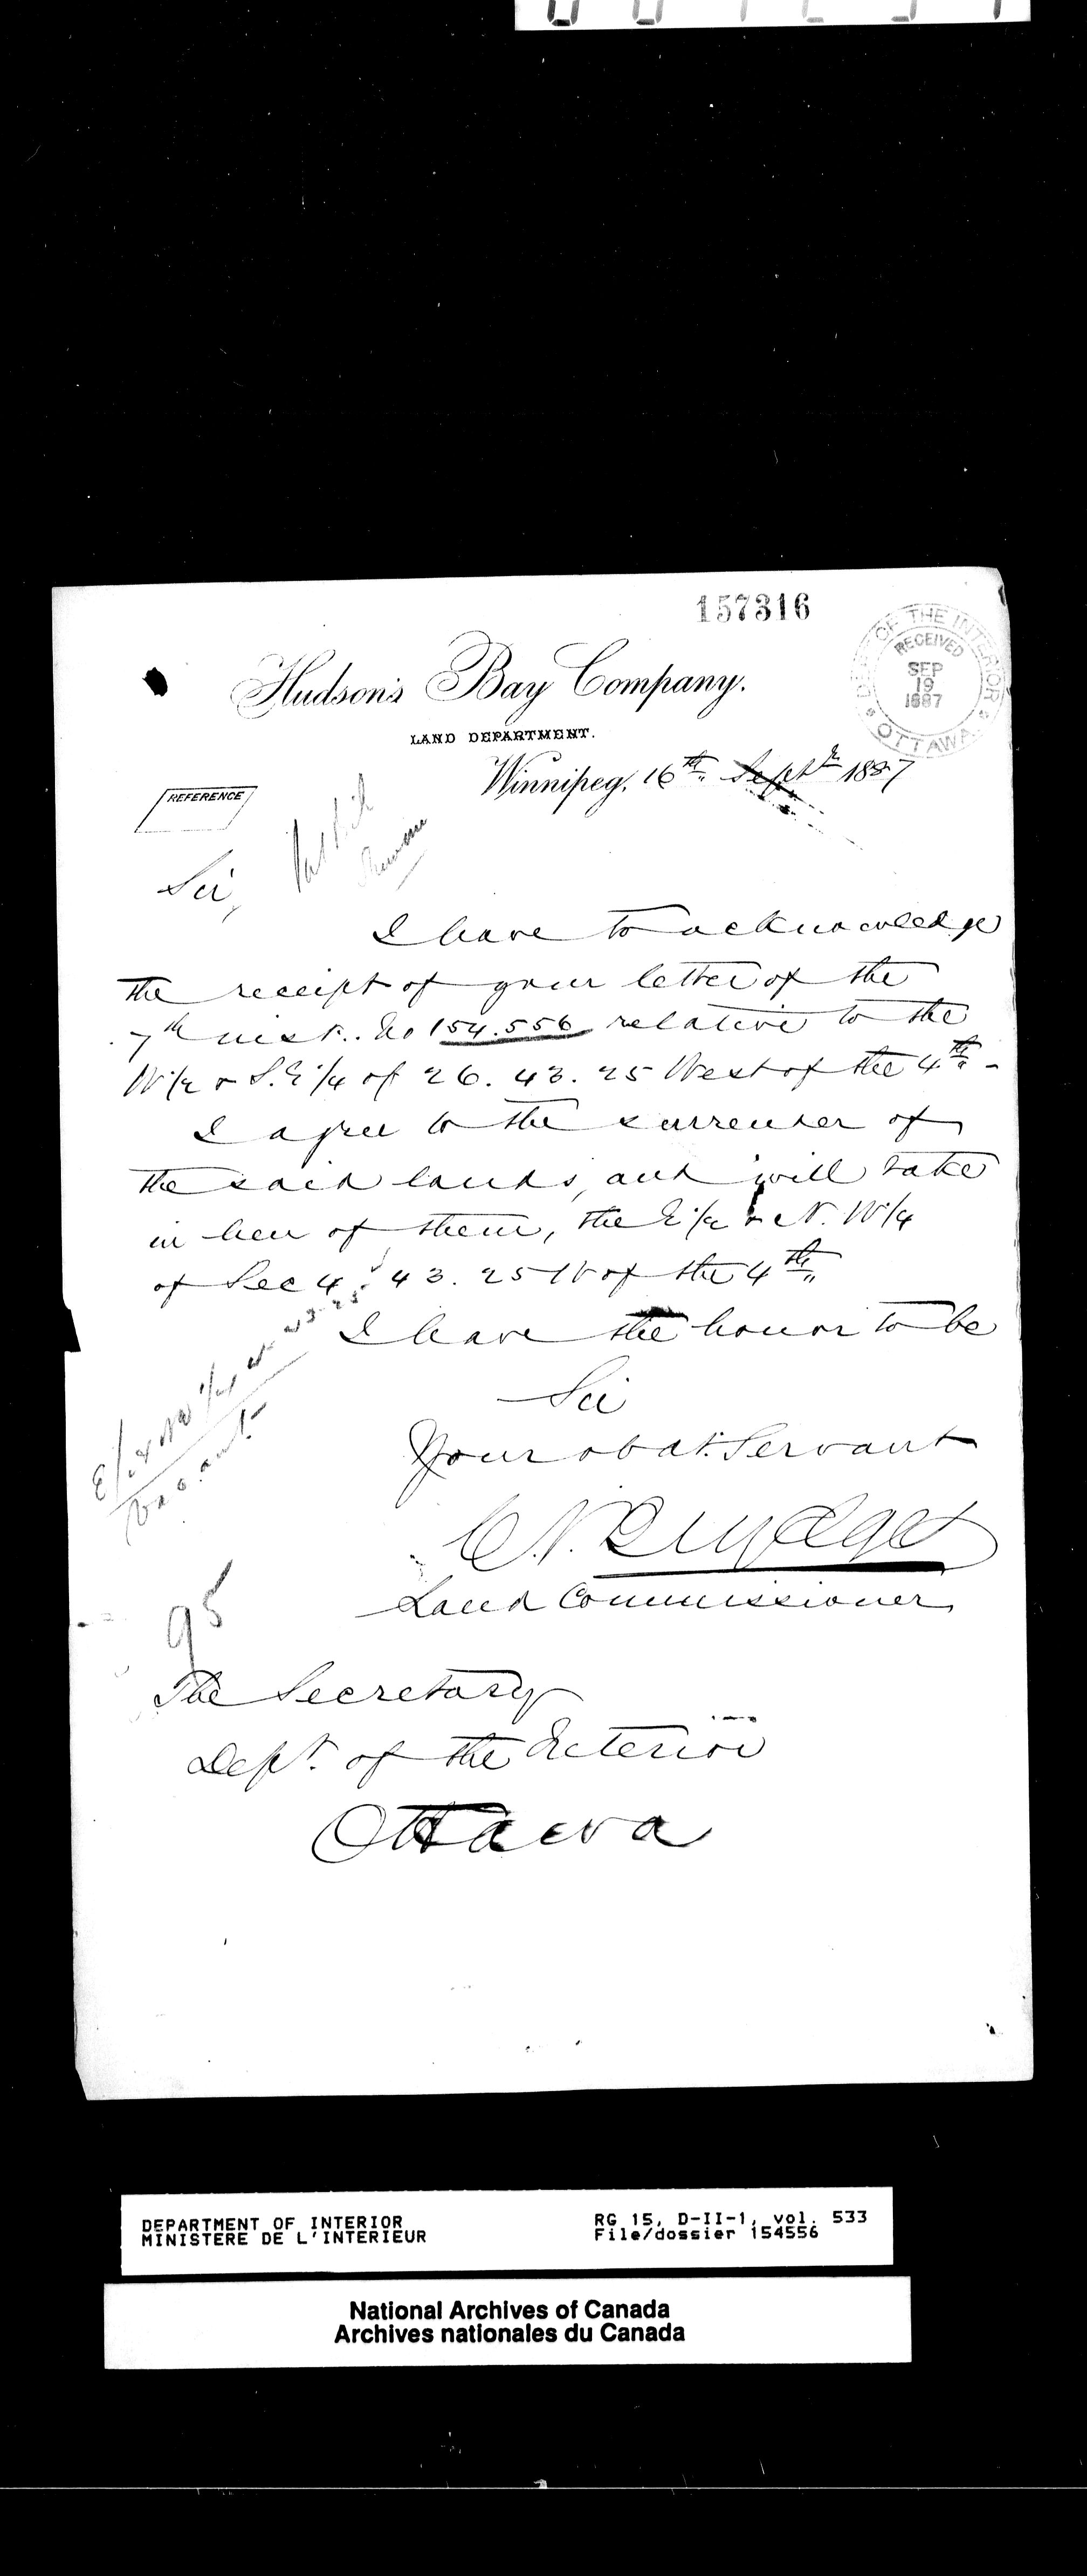 157316
DEPT OF THE INTERIOR
RECEIVED
SEP
19
1887
OTTAWA
Hudson's Bay Company.
LAND DEPARTMENT.
Winnipeg, 16th Septr 1887
REFERENCE
Sir,
I have to acknowledge
the receipt of your letter of the
7th inst. No 154.556 relative to the
W 1/2 & S.E 1/4 of 26. 43. 25 West of the 4th -
I agree to the surrender of
the said lands, and will take
in lieu of them, the E 1/2 & N. W 1/4
of Sec 4. 43. 25 W of the 4th
E 1/2 & NW 1/4 4-43-25
vacant
I have the honor to be
Sir
Your obdt. Servant
Land Commissioner
95
The Secretary
Dept. of the Interior
Ottawa
DEPARTMENT OF INTERIOR
MINISTERE DE L'INTERIEUR
RG 15, D-II-1, vol. 533
File/dossier 154556
National Archives of Canada
Archives nationales du Canada